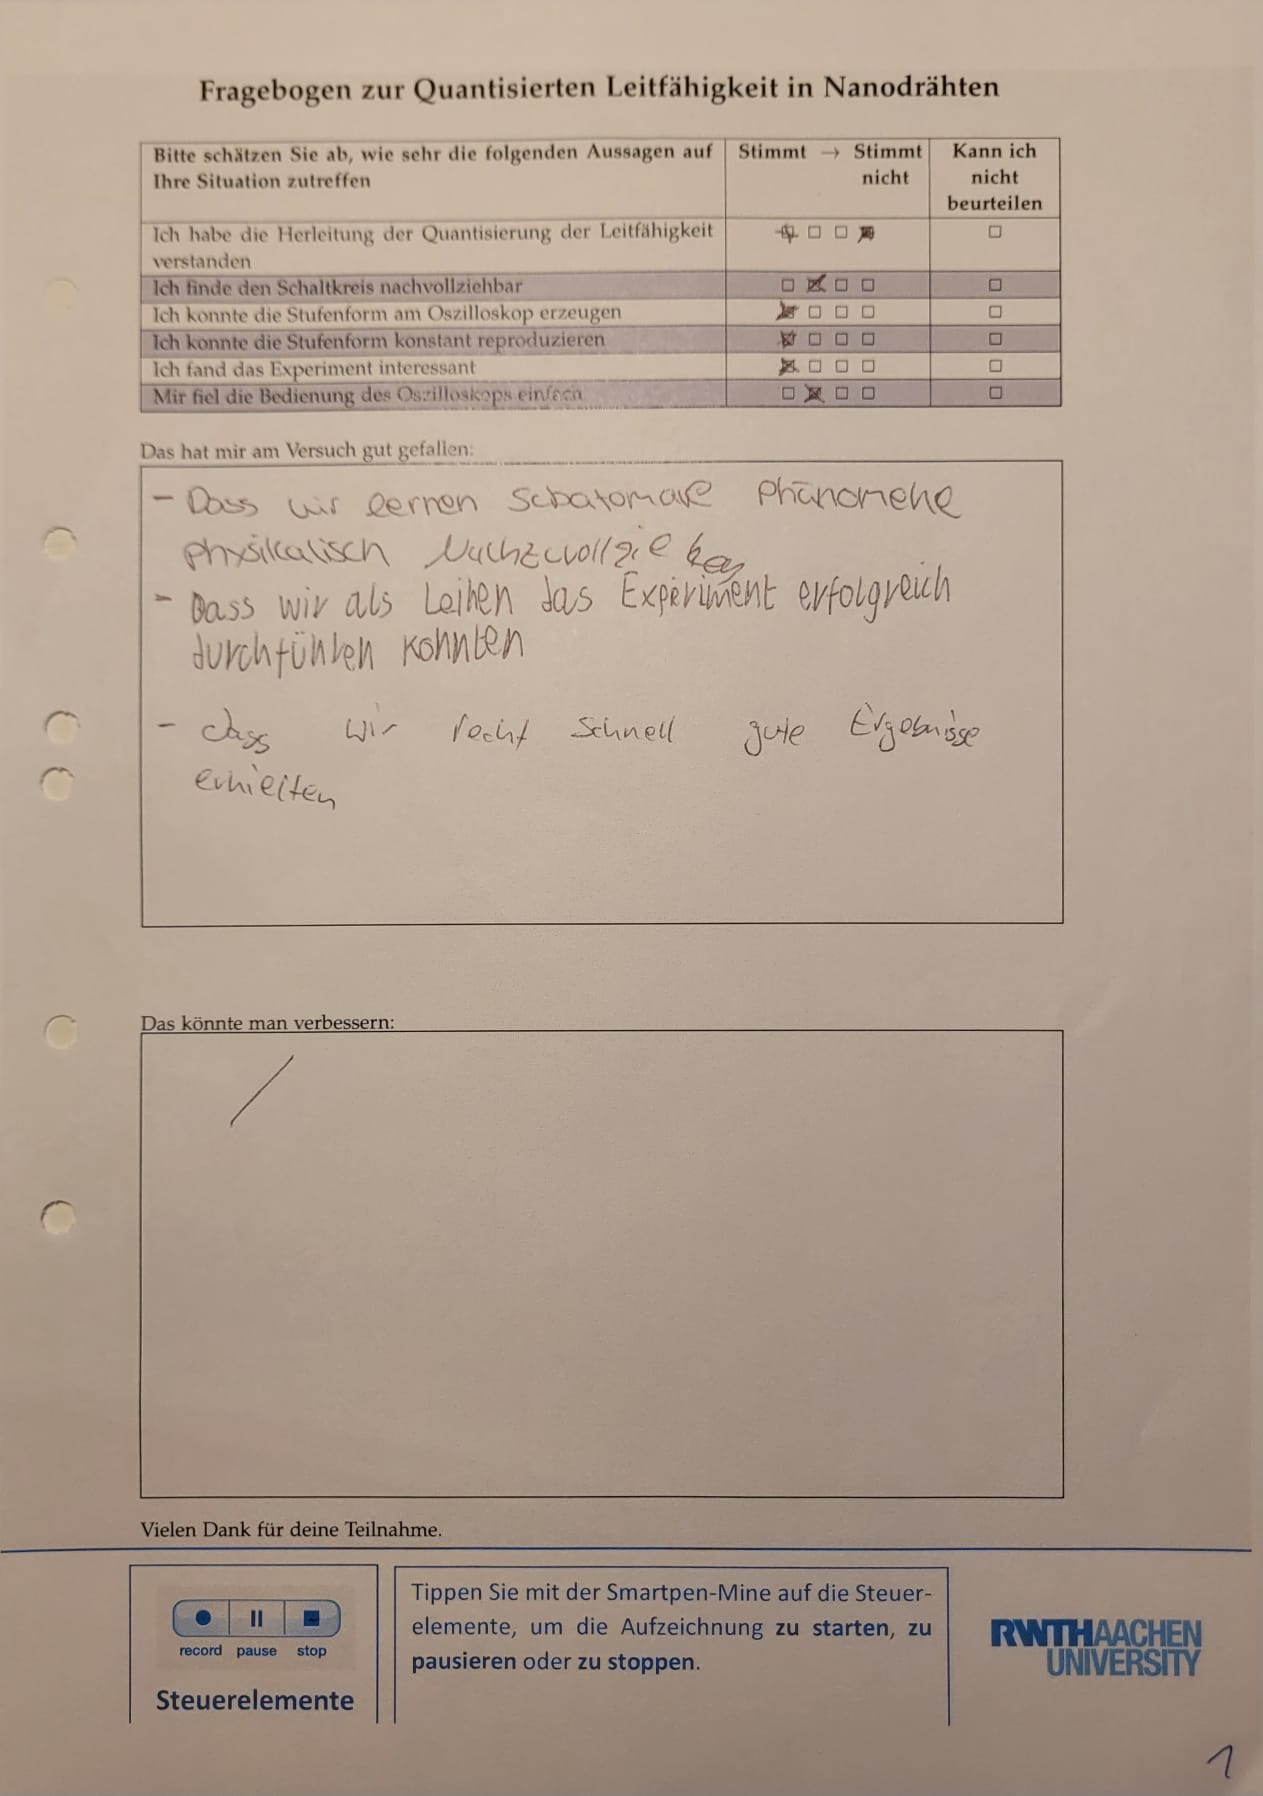 Fragebogen zur Quantisierten Leitfähigkeit in Nanodrähten
Bitte schätzen Sie ab, wie sehr die folgenden Aussagen auf Ihre Situation zutreffen
Stimmt → Stimmt nicht
Kann ich nicht beurteilen
Ich habe die Herleitung der Quantisierung der Leitfähigkeit
verstanden
Ich finde den Schaltkreis nachvollziehbar
Ich konnte die Stufenform am Oszilloskop erzeugen
Ich konnte die Stufenform konstant reproduzieren
Ich fand das Experiment interessant
Mir fiel die Bedienung des Oszilloskops einfach
Das hat mir am Versuch gut gefallen:
- Dass wir lernen Subatomare Phänomene
physikalisch Nachzuvollziehen
- Dass wir als Leihen das Experiment erfolgreich
durchführen konnten
- dass wir recht schnell gute Ergebnisse
erhielten
Das könnte man verbessern:
/
Vielen Dank für deine Teilnahme.
record pause stop
Steuerelemente
Tippen Sie mit der Smartpen-Mine auf die Steuer-
elemente, um die Aufzeichnung zu starten, zu
pausieren oder zu stoppen.
RWTHAACHEN
UNIVERSITY
1